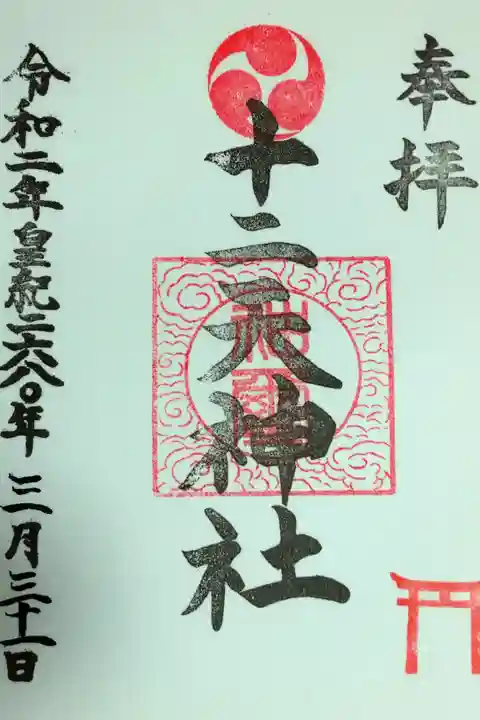 奉拝
十二天神社
令和二年皇紀二六八〇年三月三十一日